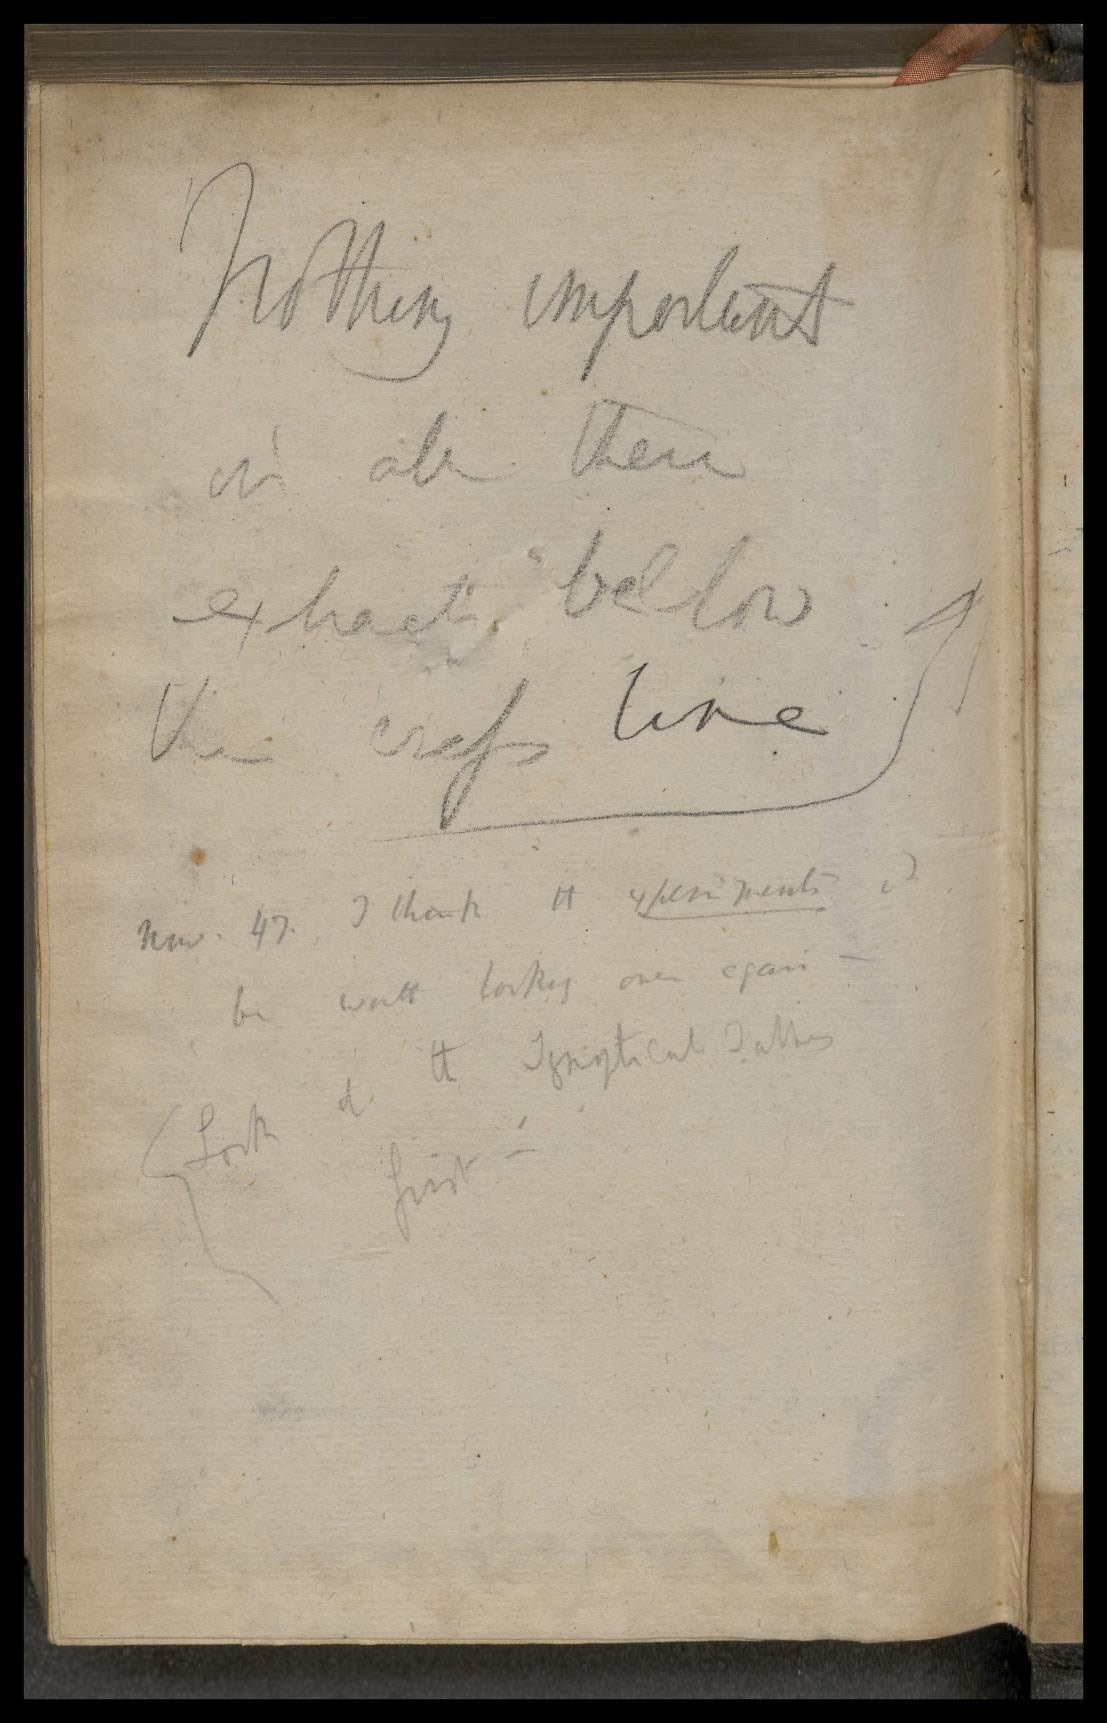 Nothing important
in all these
extracts below
the cross line
Nov. 47. I think tt experiments wd
be worth looking over again —
Look at tt Synoptical Tables
first —